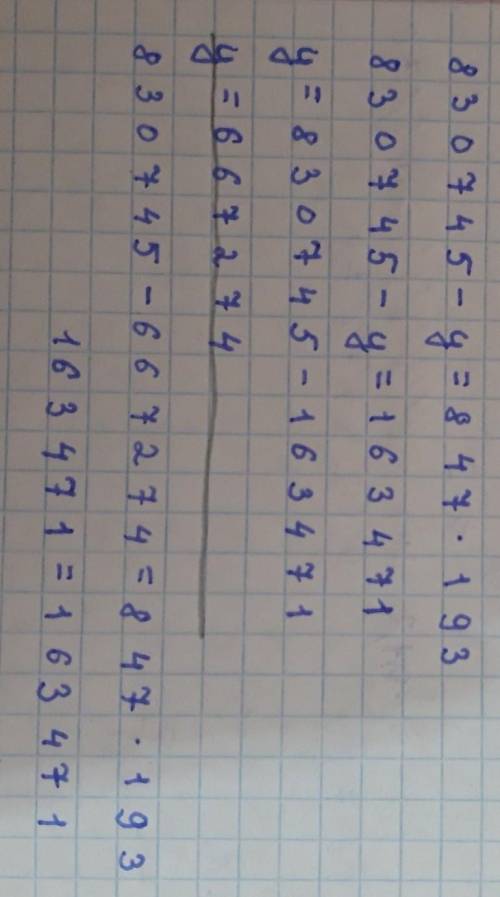 830745 - y = 847 · 193
830745 - y = 163471
y = 830745 - 163471
y = 667274
830745 - 667274 = 847 · 193
163471 = 163471